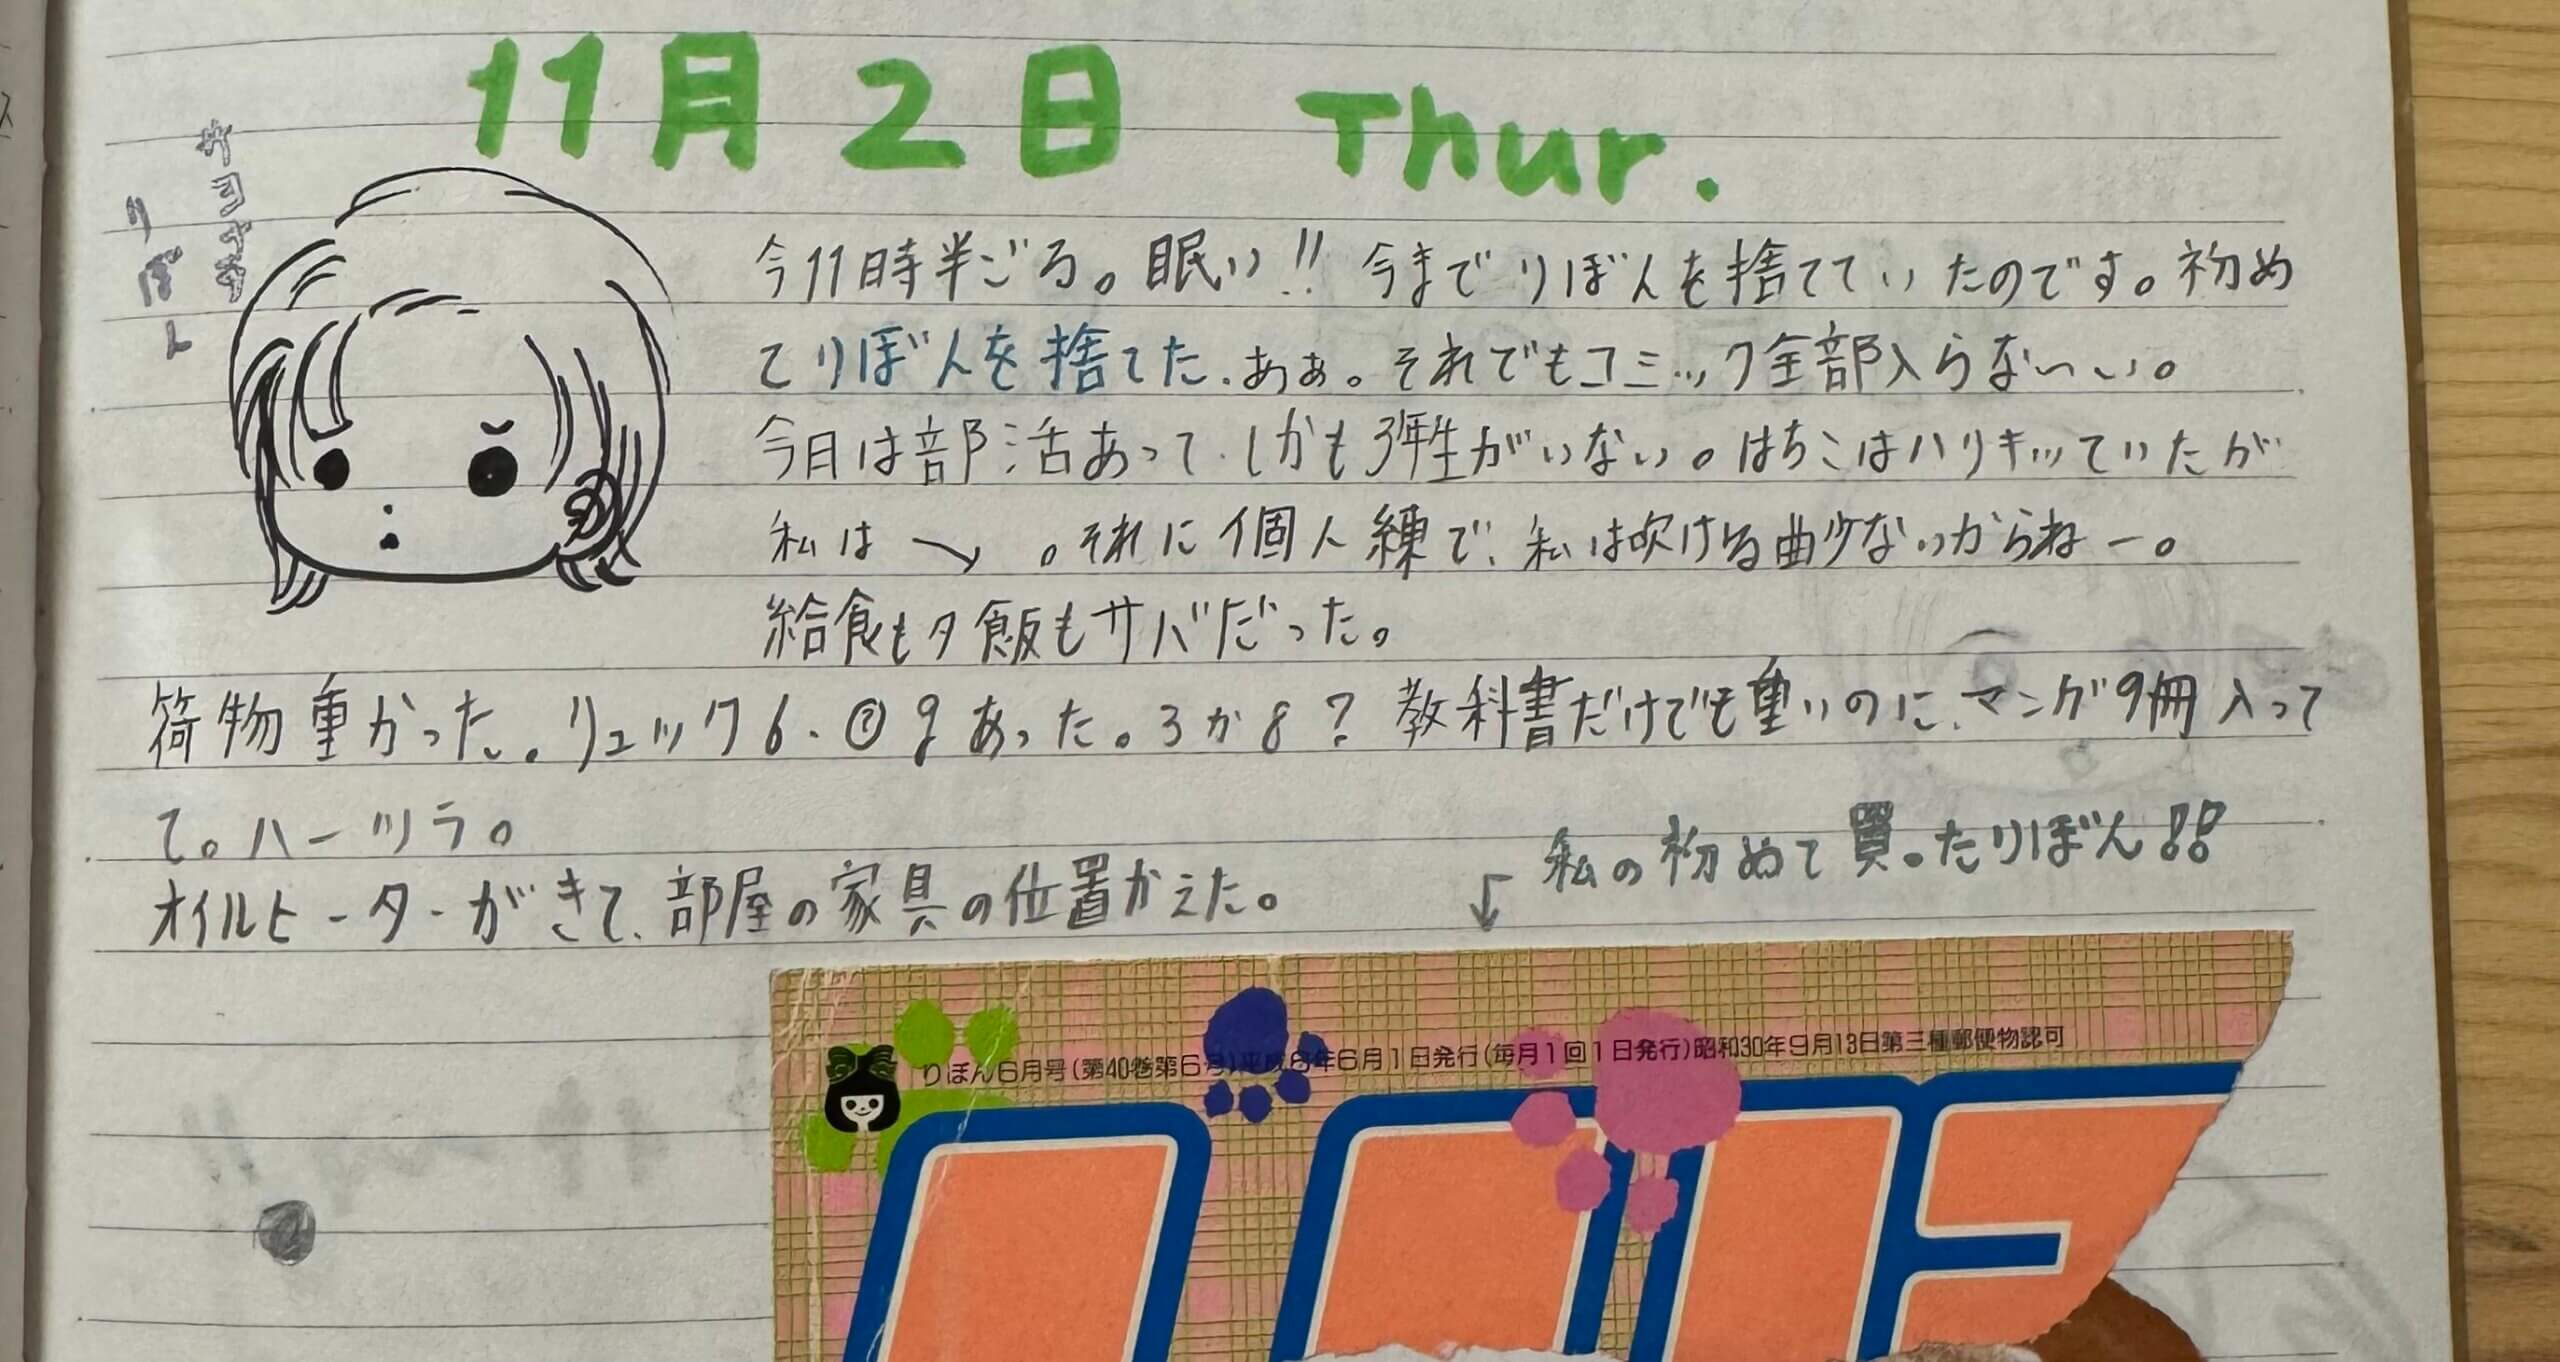 11月2日 Thur.
サヨナラ
りぼん
今11時半ごろ。眠い!! 今までりぼんを捨てていたのです。初め
てりぼんを捨てた、あぁ。それでもコミック全部入らない〜い。
今日は部活あって、しかも3年生がいない。はちこはハリキッていたが
私は↘。それに個人練で、私は吹ける曲少ないからねー。
給食も夕飯もサバだった。
荷物重かった。リュック6.②gあった。3か8?教科書だけでも重いのに、マンガ9冊入って
て。ハーツラ。
オイルヒーターがきて、部屋の家具の位置かえた。
↓私の初めて買ったりぼん!!
りぼん6月号(第40巻第6号)平成6年6月1日発行(毎月1回1日発行)昭和30年9月13日第三種郵便物認可